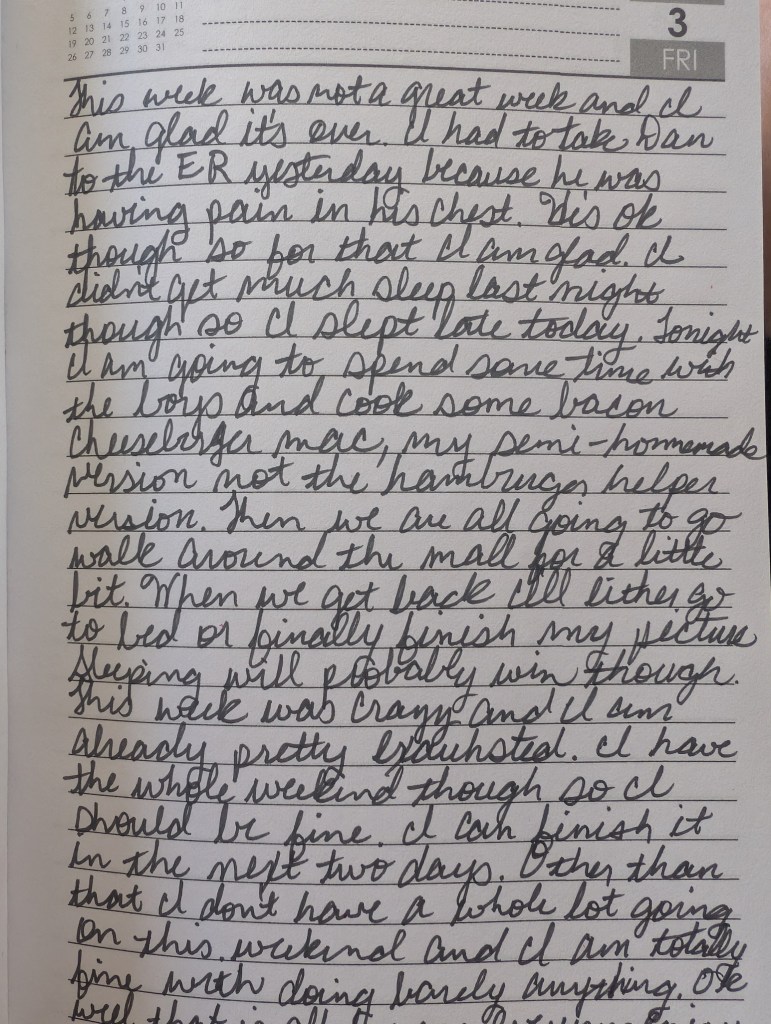 5 6 7 8 9 10 11
12 13 14 15 16 17 18
19 20 21 22 23 24 25
26 27 28 29 30 31
3
FRI
This week was not a great week and I
am glad it's over. I had to take Dan
to the ER yesterday because he was
having pain in his chest. He's ok
though so for that I am glad. I
didn't get much sleep last night
though so I slept late today. Tonight
I am going to spend some time with
the boys and cook some bacon
cheeseburger mac, my semi-hommemade
version not the hamburger helper
version. Then we are all going to go
walk around the mall for a little
bit. When we get back I'll either go
to bed or finally finish my picture
Sleeping will probably win though.
This week was crazy and I am
already pretty exauhsted. I have
the whole weekend though so I
should be fine. I can finish it
in the next two days. Other than
that I don't have a whole lot going
on this weekend and I am totally
fine with doing barely anything. Ok
well that is all